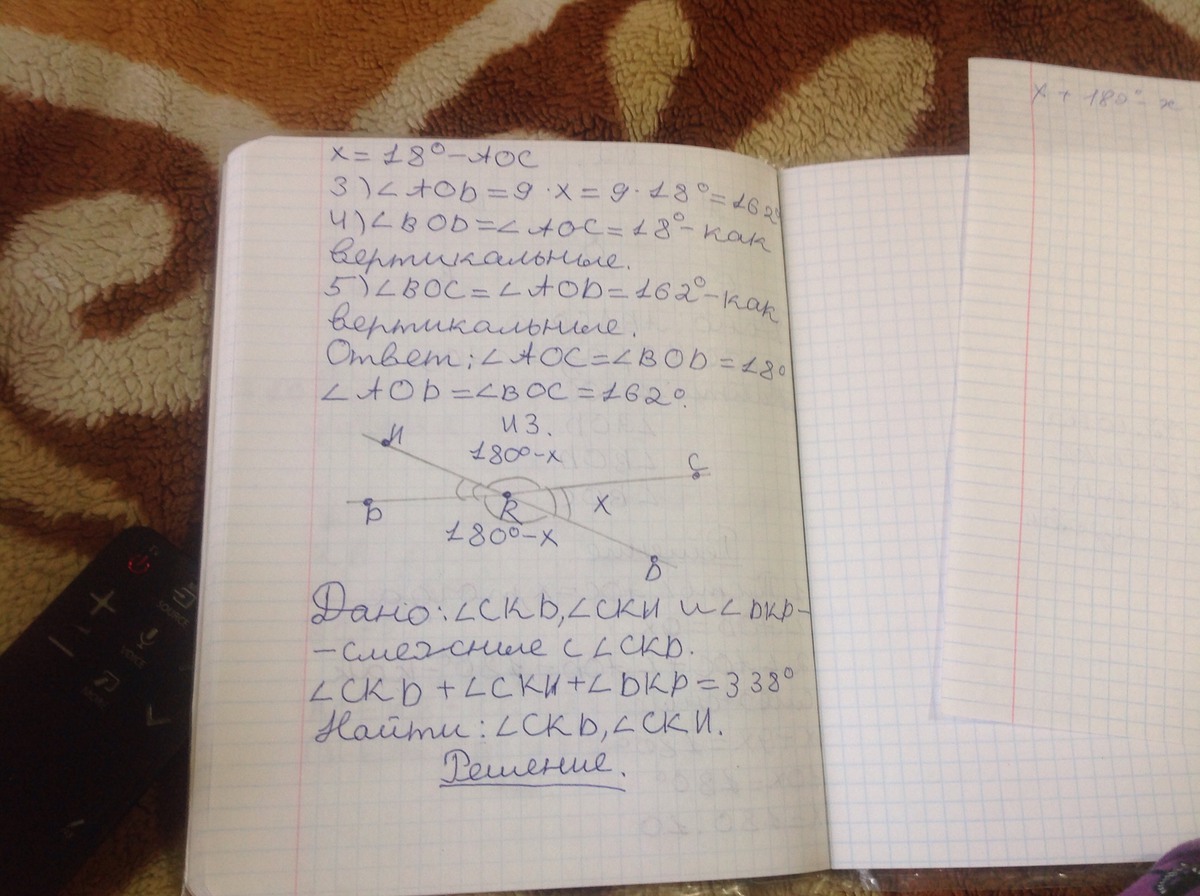 x = 18° - AOC
3) ∠AOD = 9 · x = 9 · 18° = 162°
4) ∠BOD = ∠AOC = 18° - как
вертикальные.
5) ∠BOC = ∠AOD = 162° - как
вертикальные.
Ответ: ∠AOC = ∠BOD = 18°
∠AOD = ∠BOC = 162°.
из.
И
180° - x
C
P
K
x
180° - x
D
Дано: ∠CKD, ∠CKИ и ∠DKP -
- смежные с ∠CKD.
∠CKD + ∠CKИ + ∠DKP = 338°
Найти: ∠CKD, ∠CKИ.
Решение.
x + 180° - x
VOICE